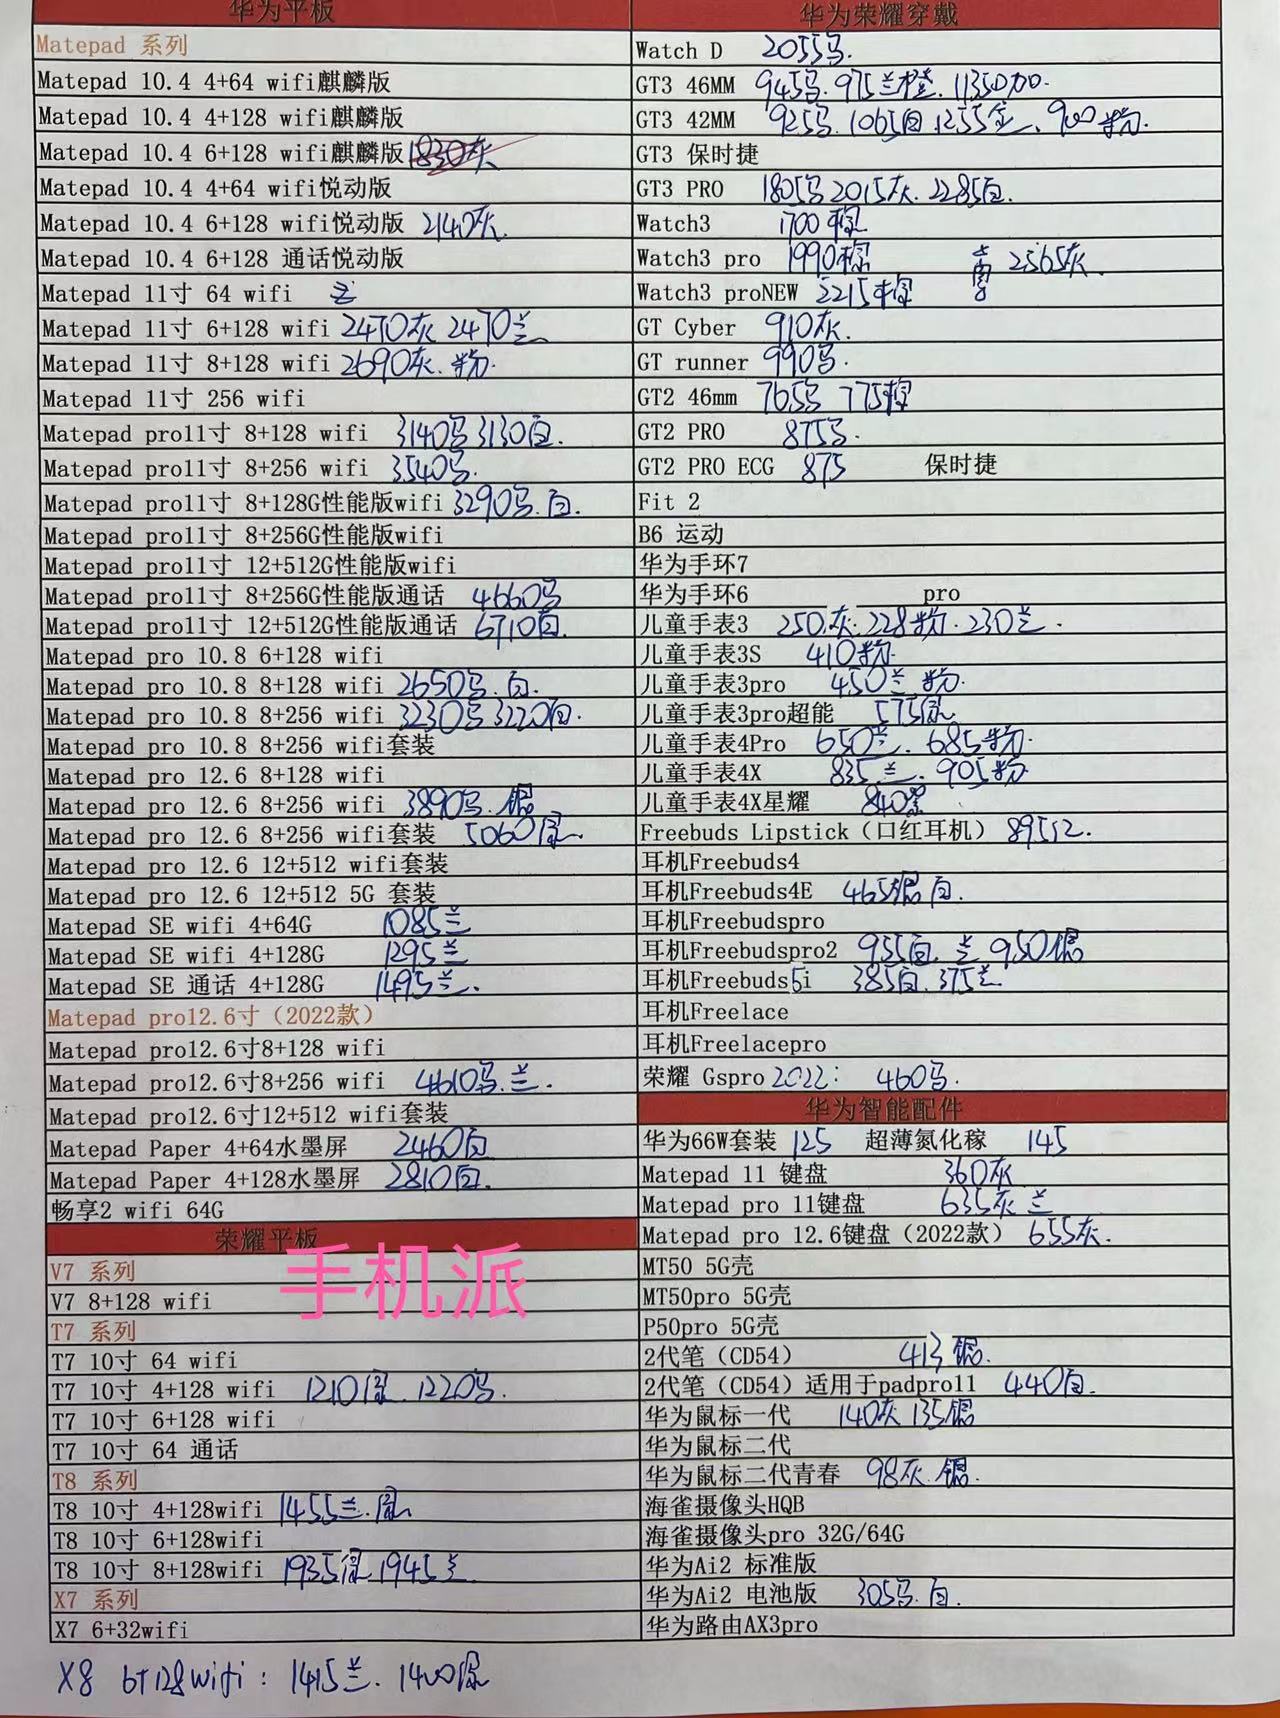 华为平板
Matepad 系列
Matepad 10.4 4+64 wifi麒麟版
Matepad 10.4 4+128 wifi麒麟版
Matepad 10.4 6+128 wifi麒麟版 1830灰
Matepad 10.4 4+64 wifi悦动版
Matepad 10.4 6+128 wifi悦动版 2140灰.
Matepad 10.4 6+128 通话悦动版
Matepad 11寸 64 wifi
Matepad 11寸 6+128 wifi 2470灰 2470兰
Matepad 11寸 8+128 wifi 2690灰.粉.
Matepad 11寸 256 wifi
Matepad pro11寸 8+128 wifi 3140马 3130白.
Matepad pro11寸 8+256 wifi 3540马.
Matepad pro11寸 8+128G性能版wifi 3290马.白.
Matepad pro11寸 8+256G性能版wifi
Matepad pro11寸 12+512G性能版wifi
Matepad pro11寸 8+256G性能版通话 4660马
Matepad pro11寸 12+512G性能版通话 6710白.
Matepad pro 10.8 6+128 wifi
Matepad pro 10.8 8+128 wifi 2650马.白.
Matepad pro 10.8 8+256 wifi 3230马 3220白.
Matepad pro 10.8 8+256 wifi套装
Matepad pro 12.6 8+128 wifi
Matepad pro 12.6 8+256 wifi 3890马.银
Matepad pro 12.6 8+256 wifi套装 5060
Matepad pro 12.6 12+512 wifi套装
Matepad pro 12.6 12+512 5G 套装
Matepad SE wifi 4+64G 1085兰
Matepad SE wifi 4+128G 1295兰
Matepad SE 通话 4+128G 1495兰.
Matepad pro12.6寸（2022款）
Matepad pro12.6寸8+128 wifi
Matepad pro12.6寸8+256 wifi 4610马.兰.
Matepad pro12.6寸12+512 wifi套装
Matepad Paper 4+64水墨屏 2460白
Matepad Paper 4+128水墨屏 2810白.
畅享2 wifi 64G
荣耀平板
手机派
V7 系列
V7 8+128 wifi
T7 系列
T7 10寸 64 wifi
T7 10寸 4+128 wifi 1210 1220马.
T7 10寸 6+128 wifi
T7 10寸 64 通话
T8 系列
T8 10寸 4+128wifi 1455兰.
T8 10寸 6+128wifi
T8 10寸 8+128wifi 1935 1945兰
X7 系列
X7 6+32wifi
X8 6+128wifi: 1415兰. 1400
华为荣耀穿戴
Watch D 2055马.
GT3 46MM 945马.975兰橙. 1135
GT3 42MM 925马.1065白.1255金.900粉.
GT3 保时捷
GT3 PRO 1805马 2015灰.2285白.
Watch3 1700棕
Watch3 pro 1990棕 2565灰.
Watch3 proNEW 2215棕
GT Cyber 910灰.
GT runner 990马.
GT2 46mm 765马 775棕
GT2 PRO 875马.
GT2 PRO ECG 875 保时捷
Fit 2
B6 运动
华为手环7
华为手环6 pro
儿童手表3 250灰.228粉.230兰.
儿童手表3S 410粉
儿童手表3pro 450兰 粉.
儿童手表3pro超能 575
儿童手表4Pro 650兰.685粉.
儿童手表4X 835兰.905粉
儿童手表4X星耀 840
Freebuds Lipstick（口红耳机） 895
耳机Freebuds4
耳机Freebuds4E 465银 白.
耳机Freebudspro
耳机Freebudspro2 935白.兰 950银
耳机Freebuds5i 385白.375兰.
耳机Freelace
耳机Freelacepro
荣耀 Gspro 2022: 460马.
华为智能配件
华为66W套装 125 超薄氮化稼 145
Matepad 11 键盘 360灰
Matepad pro 11键盘 635灰 兰
Matepad pro 12.6键盘（2022款） 655灰.
MT50 5G壳
MT50pro 5G壳
P50pro 5G壳
2代笔（CD54） 413银.
2代笔（CD54）适用于padpro11 440白.
华为鼠标一代 140灰 135银
华为鼠标二代
华为鼠标二代青春 98灰.银.
海雀摄像头HQB
海雀摄像头pro 32G/64G
华为Ai2 标准版
华为Ai2 电池版 305马.白.
华为路由AX3pro